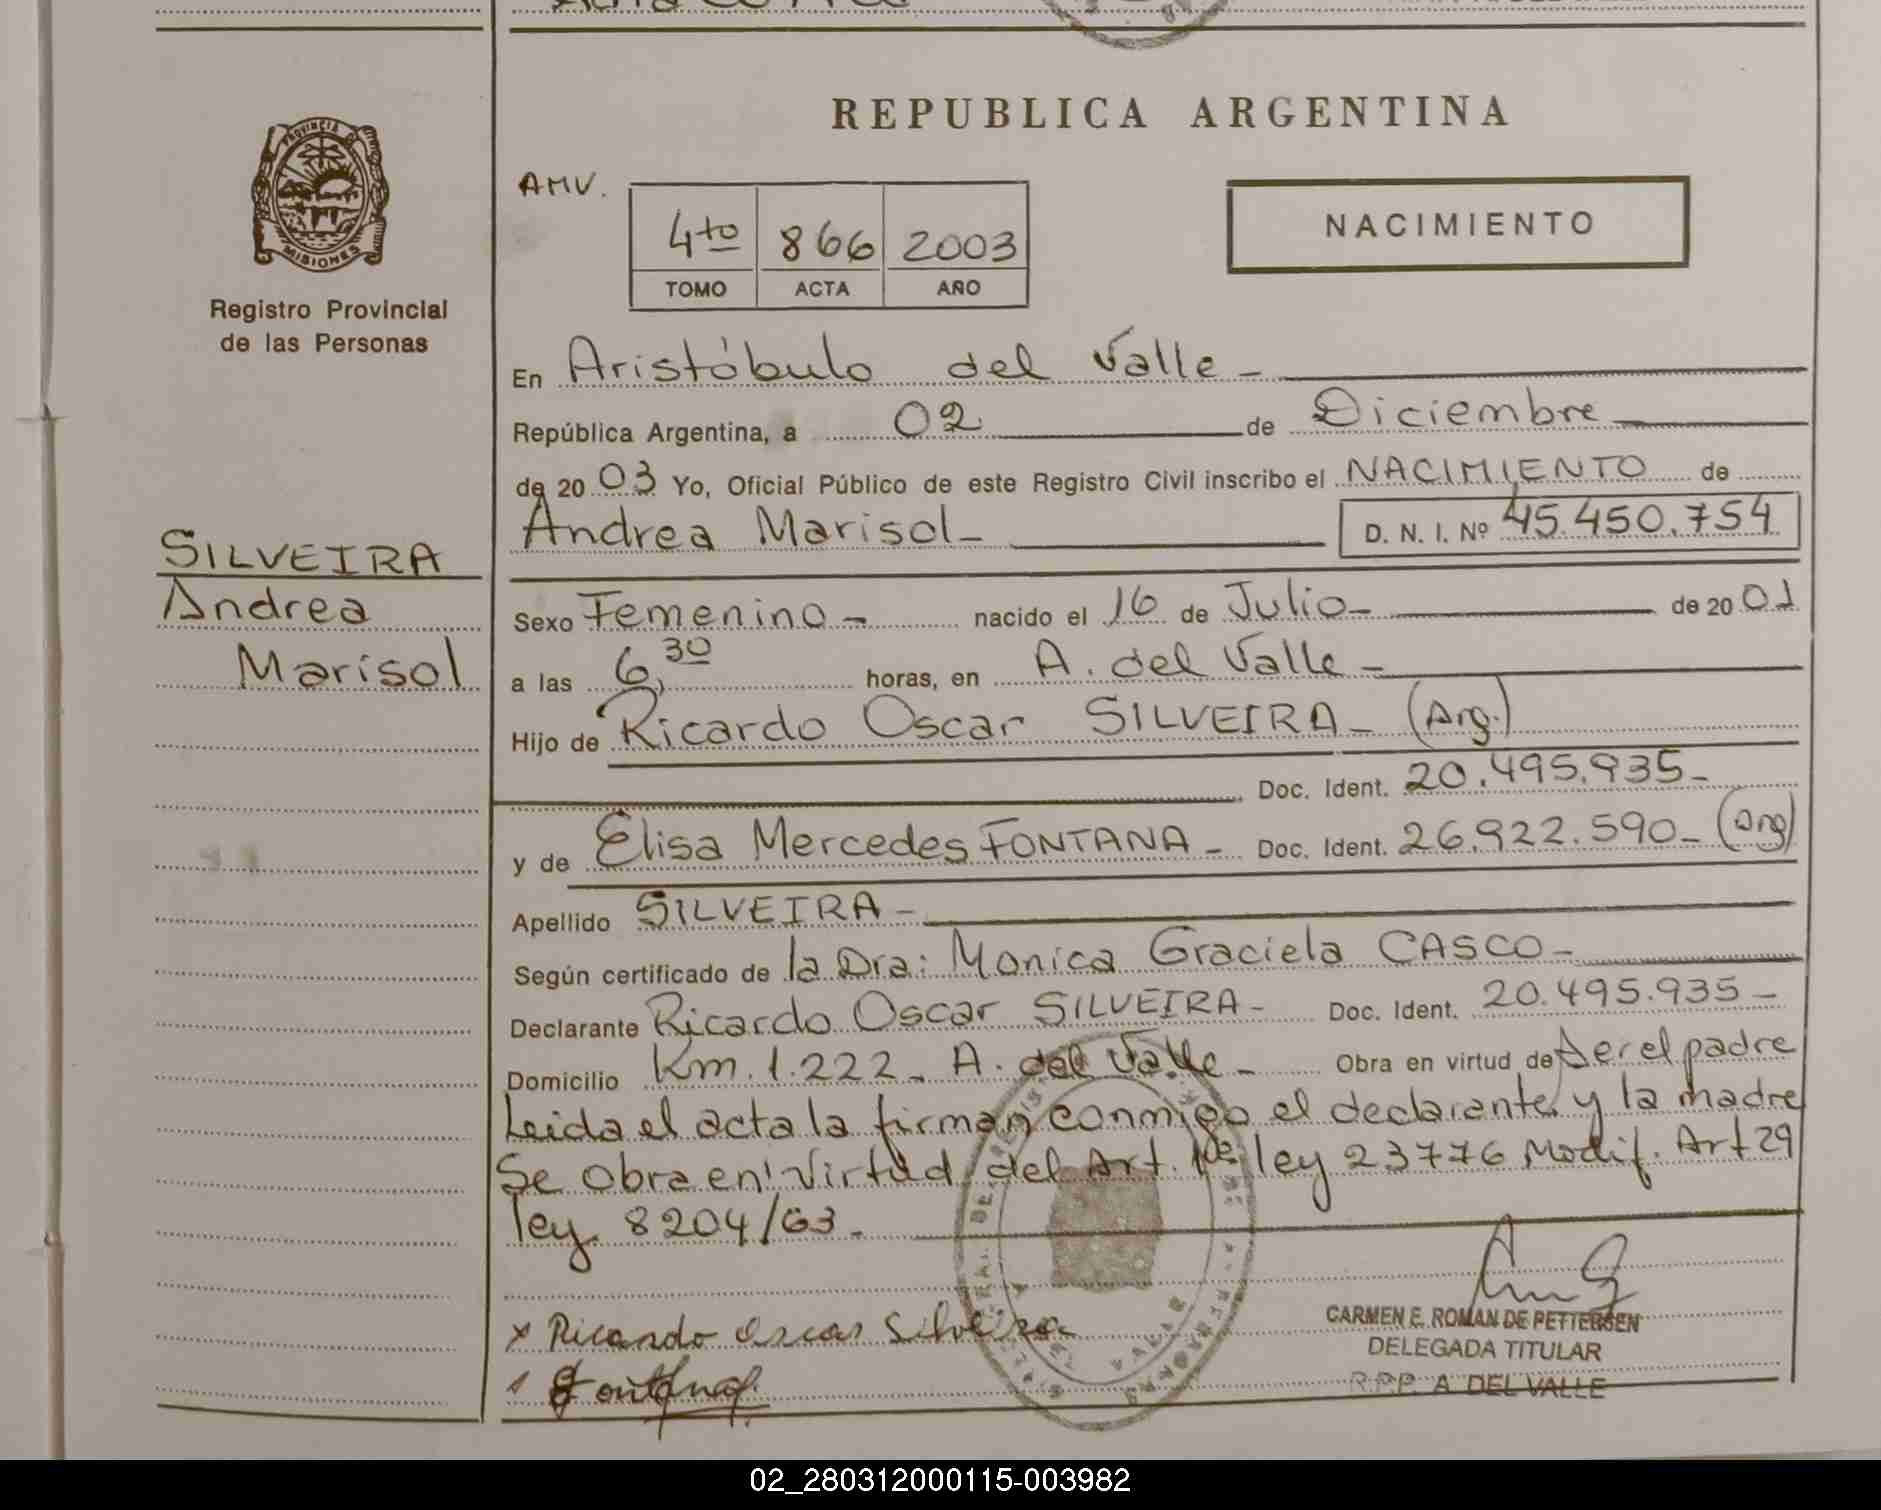 REPUBLICA ARGENTINA
PROVINCIA DE
MISIONES
Registro Provincial
de las Personas
AMV.
4to 866 2003
TOMO ACTA AÑO
NACIMIENTO
En Aristóbulo del Valle -
República Argentina, a 02 de Diciembre
de 20 03 Yo, Oficial Público de este Registro Civil inscribo el NACIMIENTO de
Andrea Marisol - D. N. I. Nº 45.450.754
SILVEIRA
Andrea
Marisol
Sexo Femenino - nacido el 16 de Julio - de 20 01
a las 6,30 horas, en A. del Valle -
Hijo de Ricardo Oscar SILVEIRA - (Arg.)
Doc. Ident. 20.495.935 -
y de Elisa Mercedes FONTANA - Doc. Ident. 26.922.590 - (Arg)
Apellido SILVEIRA -
Según certificado de la Dra: Monica Graciela CASCO -
Declarante Ricardo Oscar SILVEIRA - Doc. Ident. 20.495.935 -
Domicilio Km. 1.222 - A. del Valle - Obra en virtud de Ser el padre
Leida el acta la firman conmigo el declarante y la madre
Se obra en virtud del Art. 1º ley 23776 Modif. Art 29
ley 8204/63 -
x Ricardo Oscar Silveira
Fontana
CARMEN E. ROMAN DE PETTERSEN
DELEGADA TITULAR
R.P.P. A. DEL VALLE
02_280312000115-003982